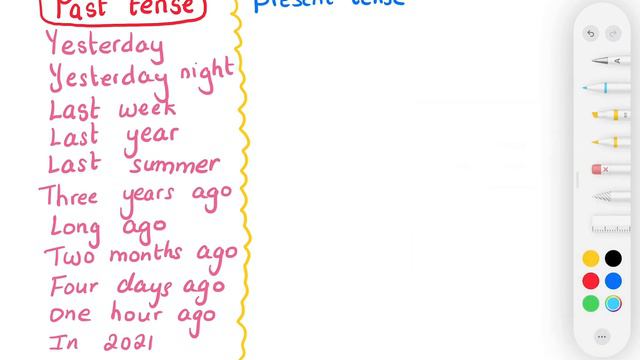 Past tense
Present tense
Yesterday
Yesterday night
Last week
Last year
Last summer
Three years ago
Long ago
Two months ago
Four days ago
One hour ago
In 2021